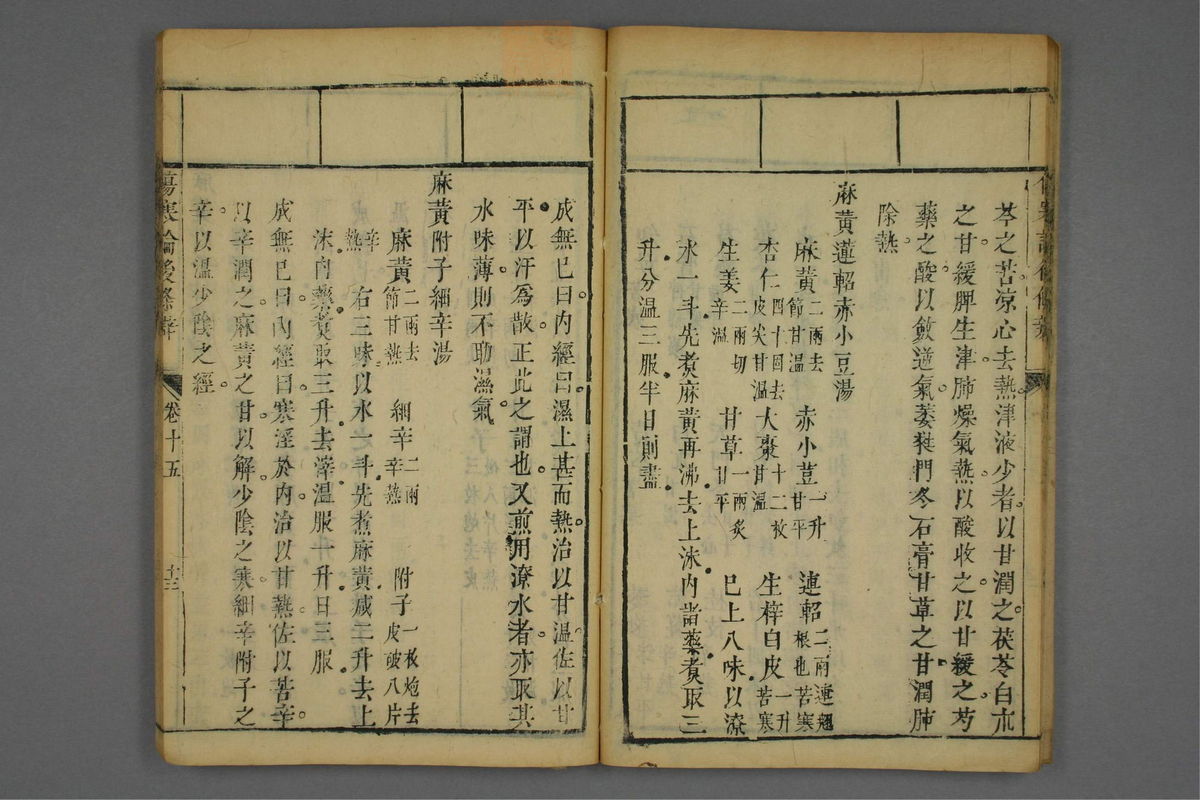 芩之苦凉心去熱津液少者以甘潤之茯苓白朮
之甘緩脾生津肺燥氣熱以酸收之以甘緩之芍
藥之酸以斂逆氣萎蕤門冬石膏甘草之甘潤肺
除熱
麻黃連軺赤小豆湯
麻黃二兩去節甘溫 赤小荳一升甘平 連軺二兩連翹根也苦寒
杏仁四十個去皮尖甘溫 大棗十二枚甘溫 生梓白皮一升苦寒
生姜二兩切辛溫 甘草一兩炙甘平 已上八味以潦
水一斗先煮麻黃再沸去上沫內諸藥煮取三
升分溫三服半日則盡
成無已曰內經曰濕上甚而熱治以甘溫佐以甘
平以汗爲故正此之謂也又煎用潦水者亦取其
水味薄則不助濕氣
麻黃附子細辛湯
麻黃二兩去節甘熱 細辛二兩辛熱 附子一枚炮去皮破八片
辛熱 右三味以水一斗先煮麻黃减二升去上
沫內藥煮取三升去滓溫服一升日三服
成無已曰內經曰寒淫於內治以甘熱佐以苦辛
以辛潤之麻黃之甘以解少陰之寒細辛附子之
辛以溫少陰之經
傷寒論後條辨 卷十五 十三